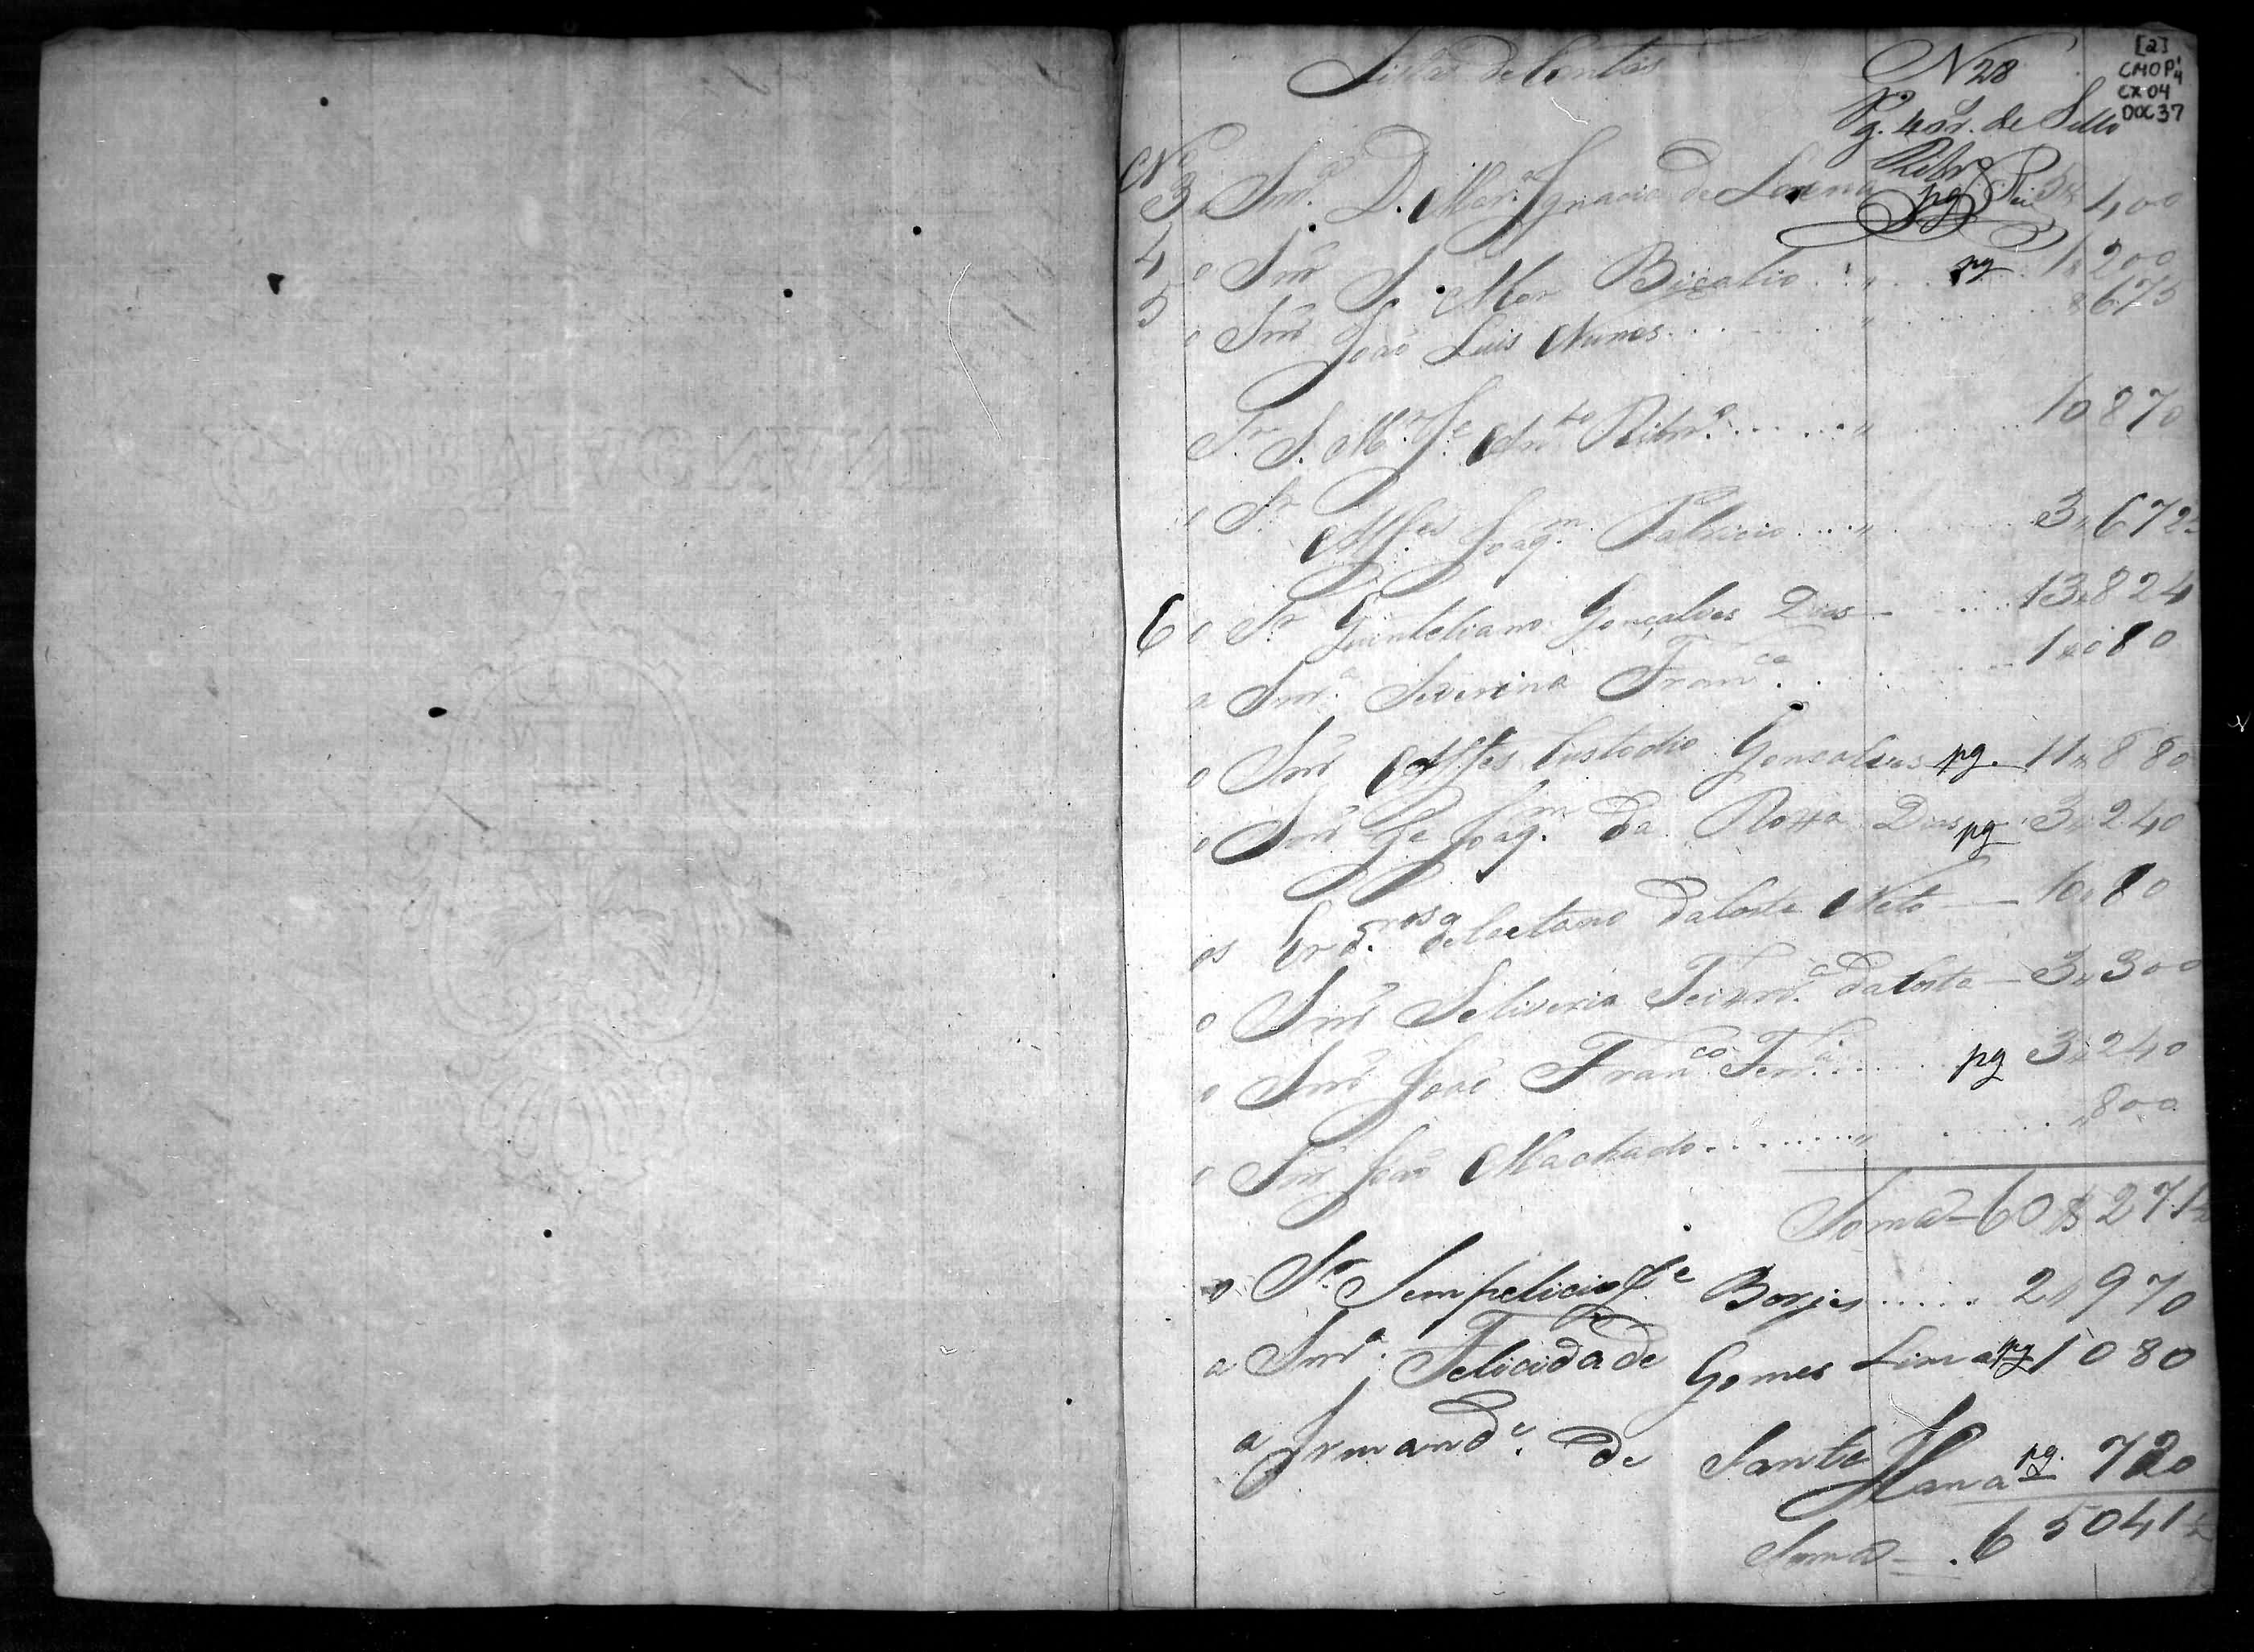 Lista de Contas
N 28
[2]
CMOP
CX 04
DOC 37
Pg. 40 r. de Sello
Ribr.º
Nº
3 a Snrª D. Marª Ignacia de Lorena pg 400
4 o Snr S. Mor Bicalio pg 1"200
5 o Snr João Luis Nunes "675
Sr S. Mr Je Antº Ribrº 10 870
o Sr Alfes Joaqm Patricio 3"672
6 o Sr Quinteliano Gonçalves Dias 13"824
a Snrª Severina Franca 1"080
o Snr Alfes Custodio Gonçalves pg. 11"880
o Snr Je Joaqm da Rocha Dias pg 3"240
os Erdros de Caetano da Costa Neto 10"80
o Snr Seliveria da Costa 3"300
o Snr João Franco pg 3"240
o Snr João Machado "800
Soma 60$271½
o Sr Sempelicio Je Borjes 2"970
a Snrª Felicidade Gomes Lima pg 1 080
a Irmande de Santa Anna pg. 720
Soma 65041½